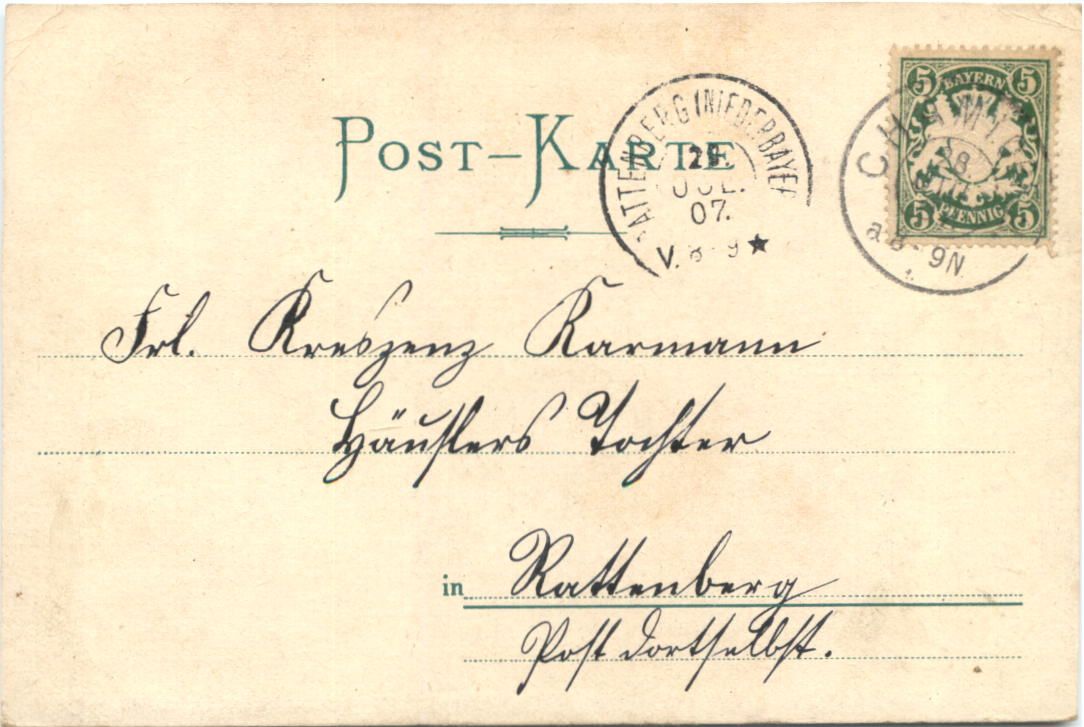 POST-KARTE
BAYERN
5 5
5 5
PFENNIG
CHAM
28.
9N
RATTENBERG (NIEDERBAYER
29.
JUL.
07.
V. 8-9
Frl. Kreszenz Karmann
Häuslers Tochter
in Rattenberg
Post dortselbst.